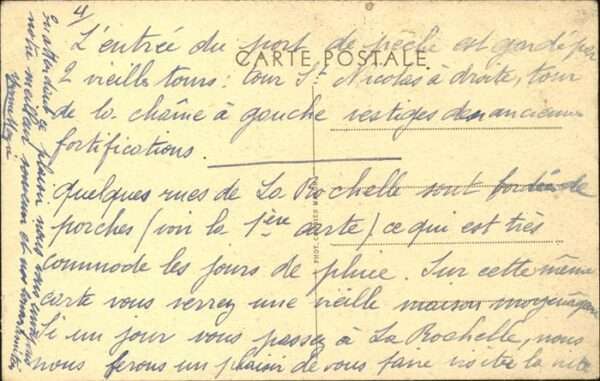 4)
CARTE POSTALE
L'entrée du port de pêche est gardé par
2 vieilles tours : tour St Nicolas à droite, tour
de la chaîne à gauche vestiges des anciennes
fortifications.
Quelques rues de La Rochelle sont bordées de
porches (voir la 1ère carte) ce qui est très
commode les jours de pluie. Sur cette même
carte vous verrez une vieille maison moyenâgeuse
Si un jour vous passez à La Rochelle, nous
nous ferons un plaisir de vous faire visiter la ville
En attendant ce plaisir nous vous
notre meilleur souvenir et nos
PHOT.